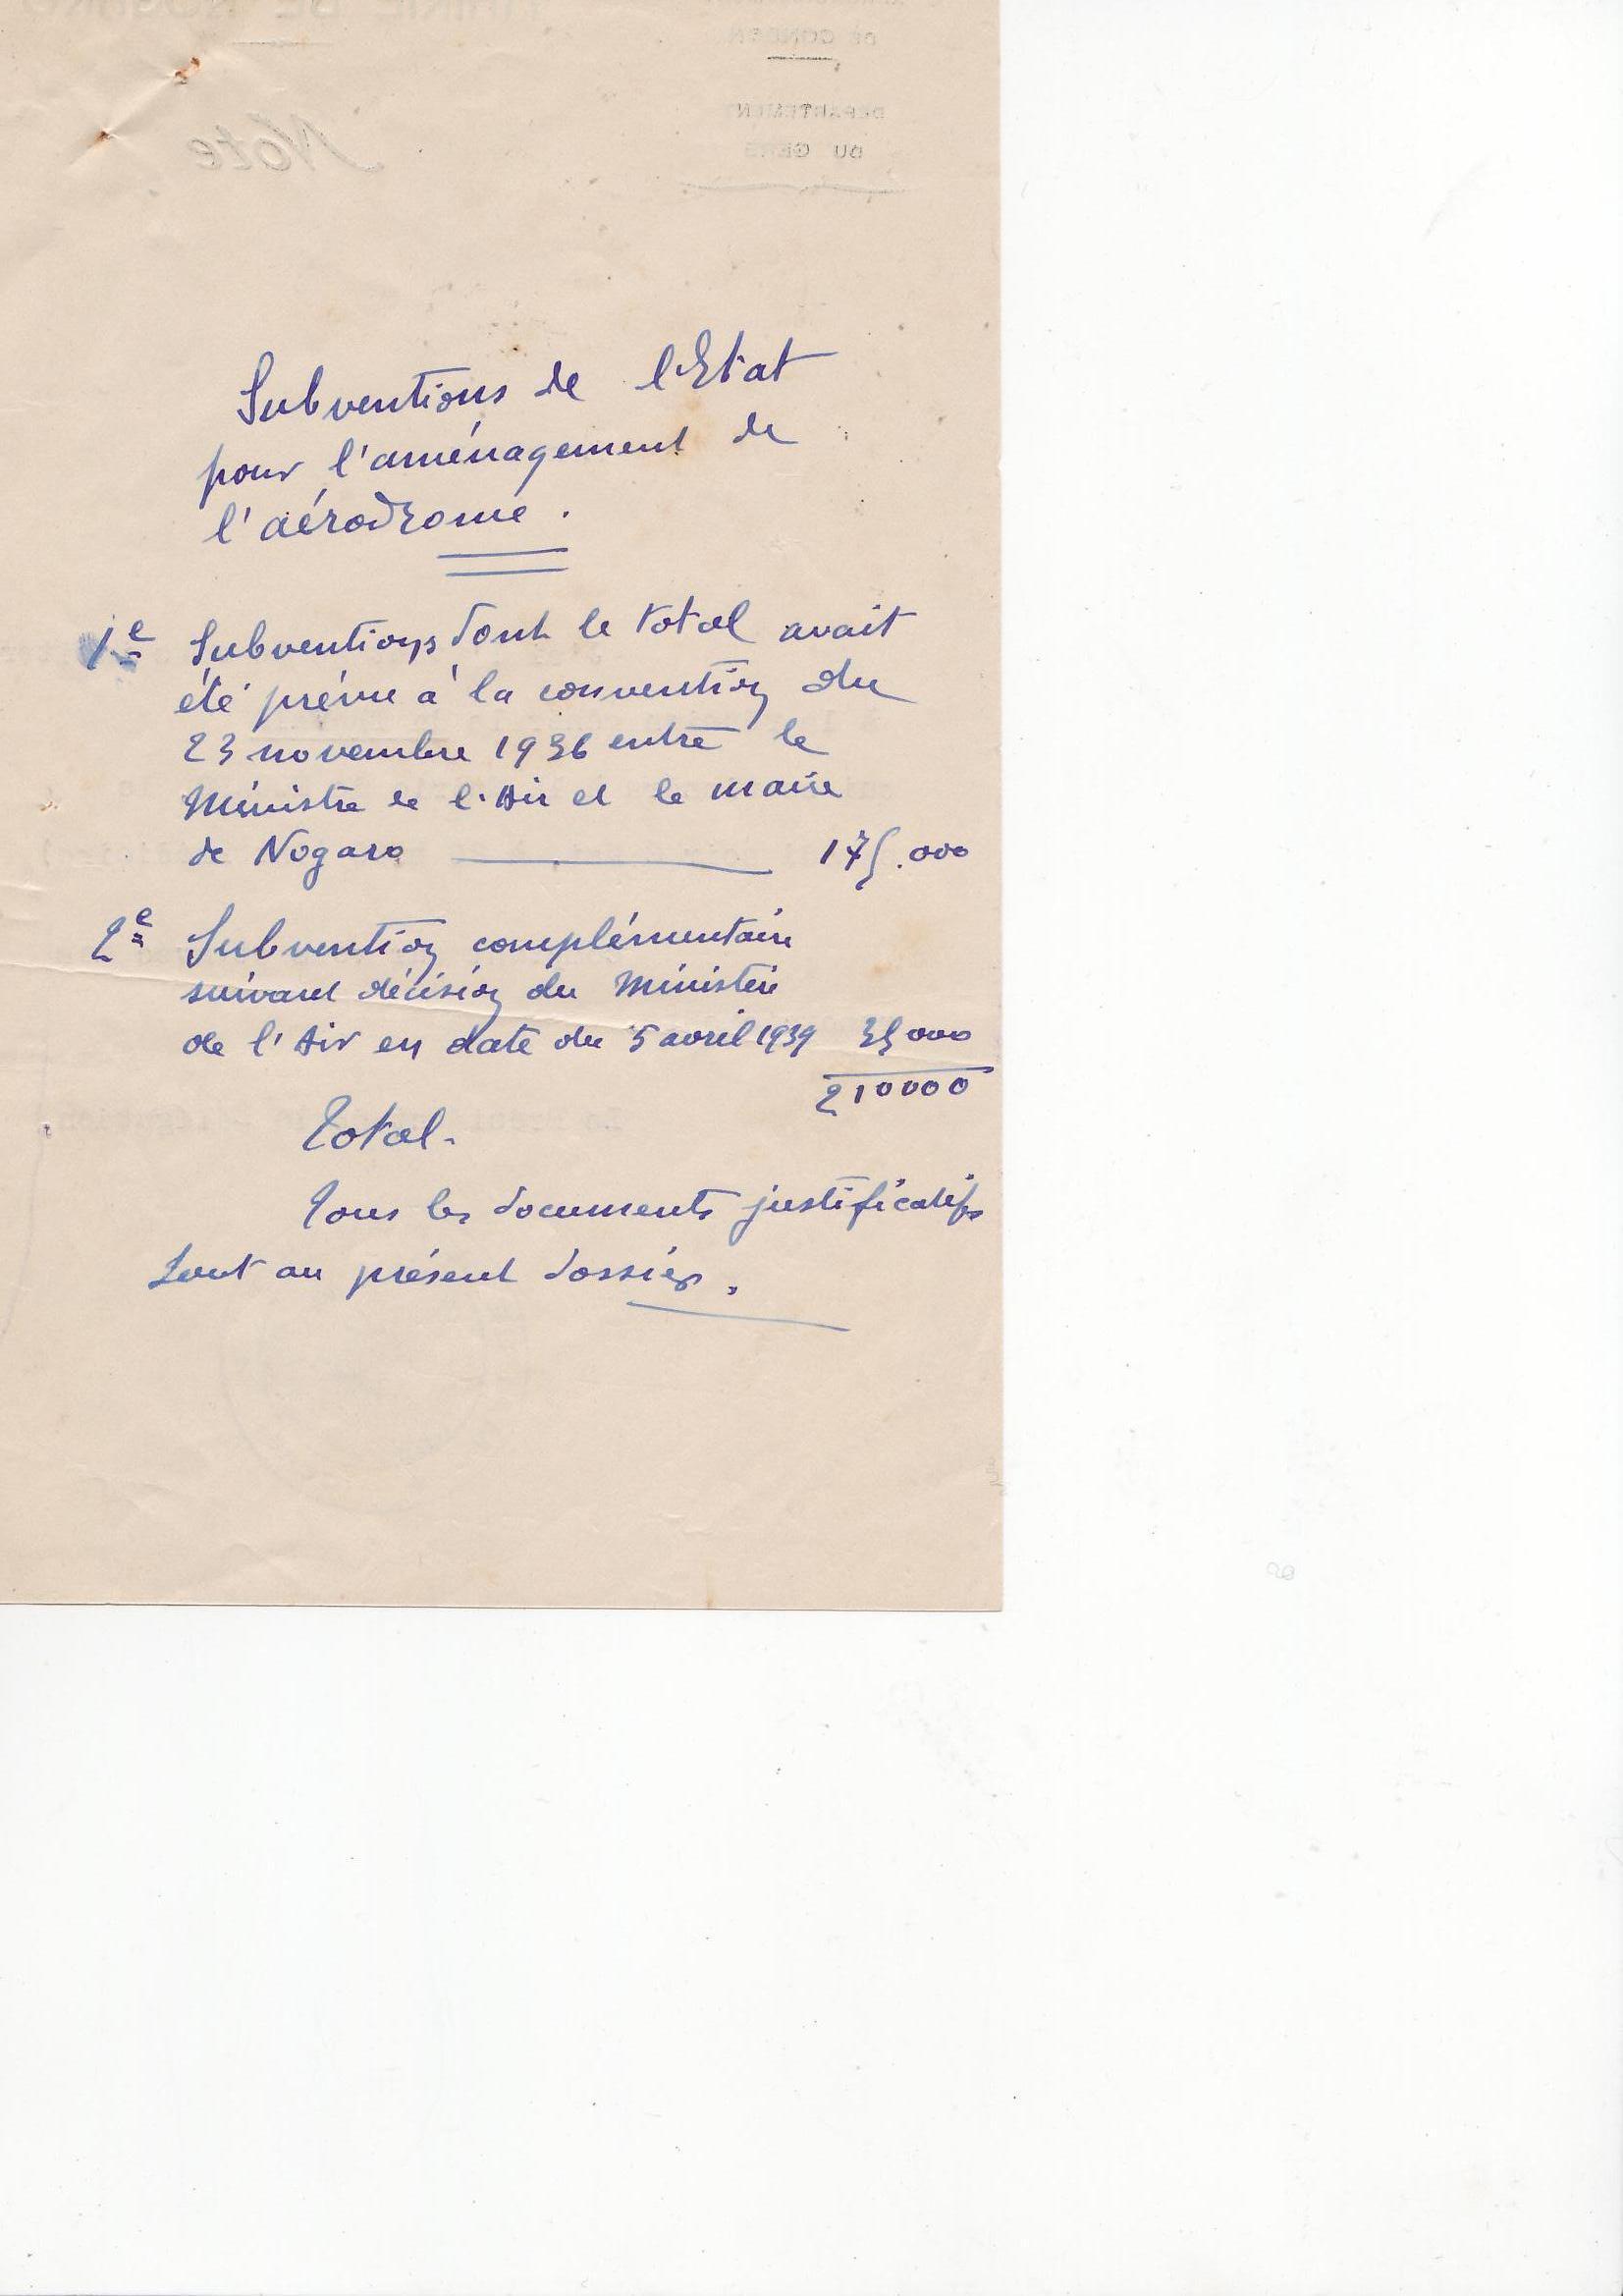 Subventions de l'Etat
pour l'aménagement de
l'aérodrome.
1e Subventions dont le total avait
été prévu à la convention du
23 novembre 1936 entre le
Ministre de l'Air et le maire
de Nogaro 175.000
2e Subvention complémentaire
suivant décision du Ministère
de l'Air en date du 5 avril 1939 35000
210000
Total.
Tous les documents justificatifs
sont au présent dossier.